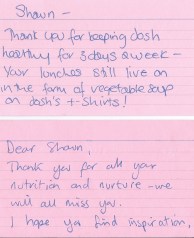 Shaun -
Thank you for keeping dosh
healthy for 3 days a week -
Your lunches still live on
in the form of vegetable soup
on dosh's t-shirts!
Dear Shaun,
Thank you for all your
nutrition and nurture - we
will all miss you.
I hope you find inspiration,